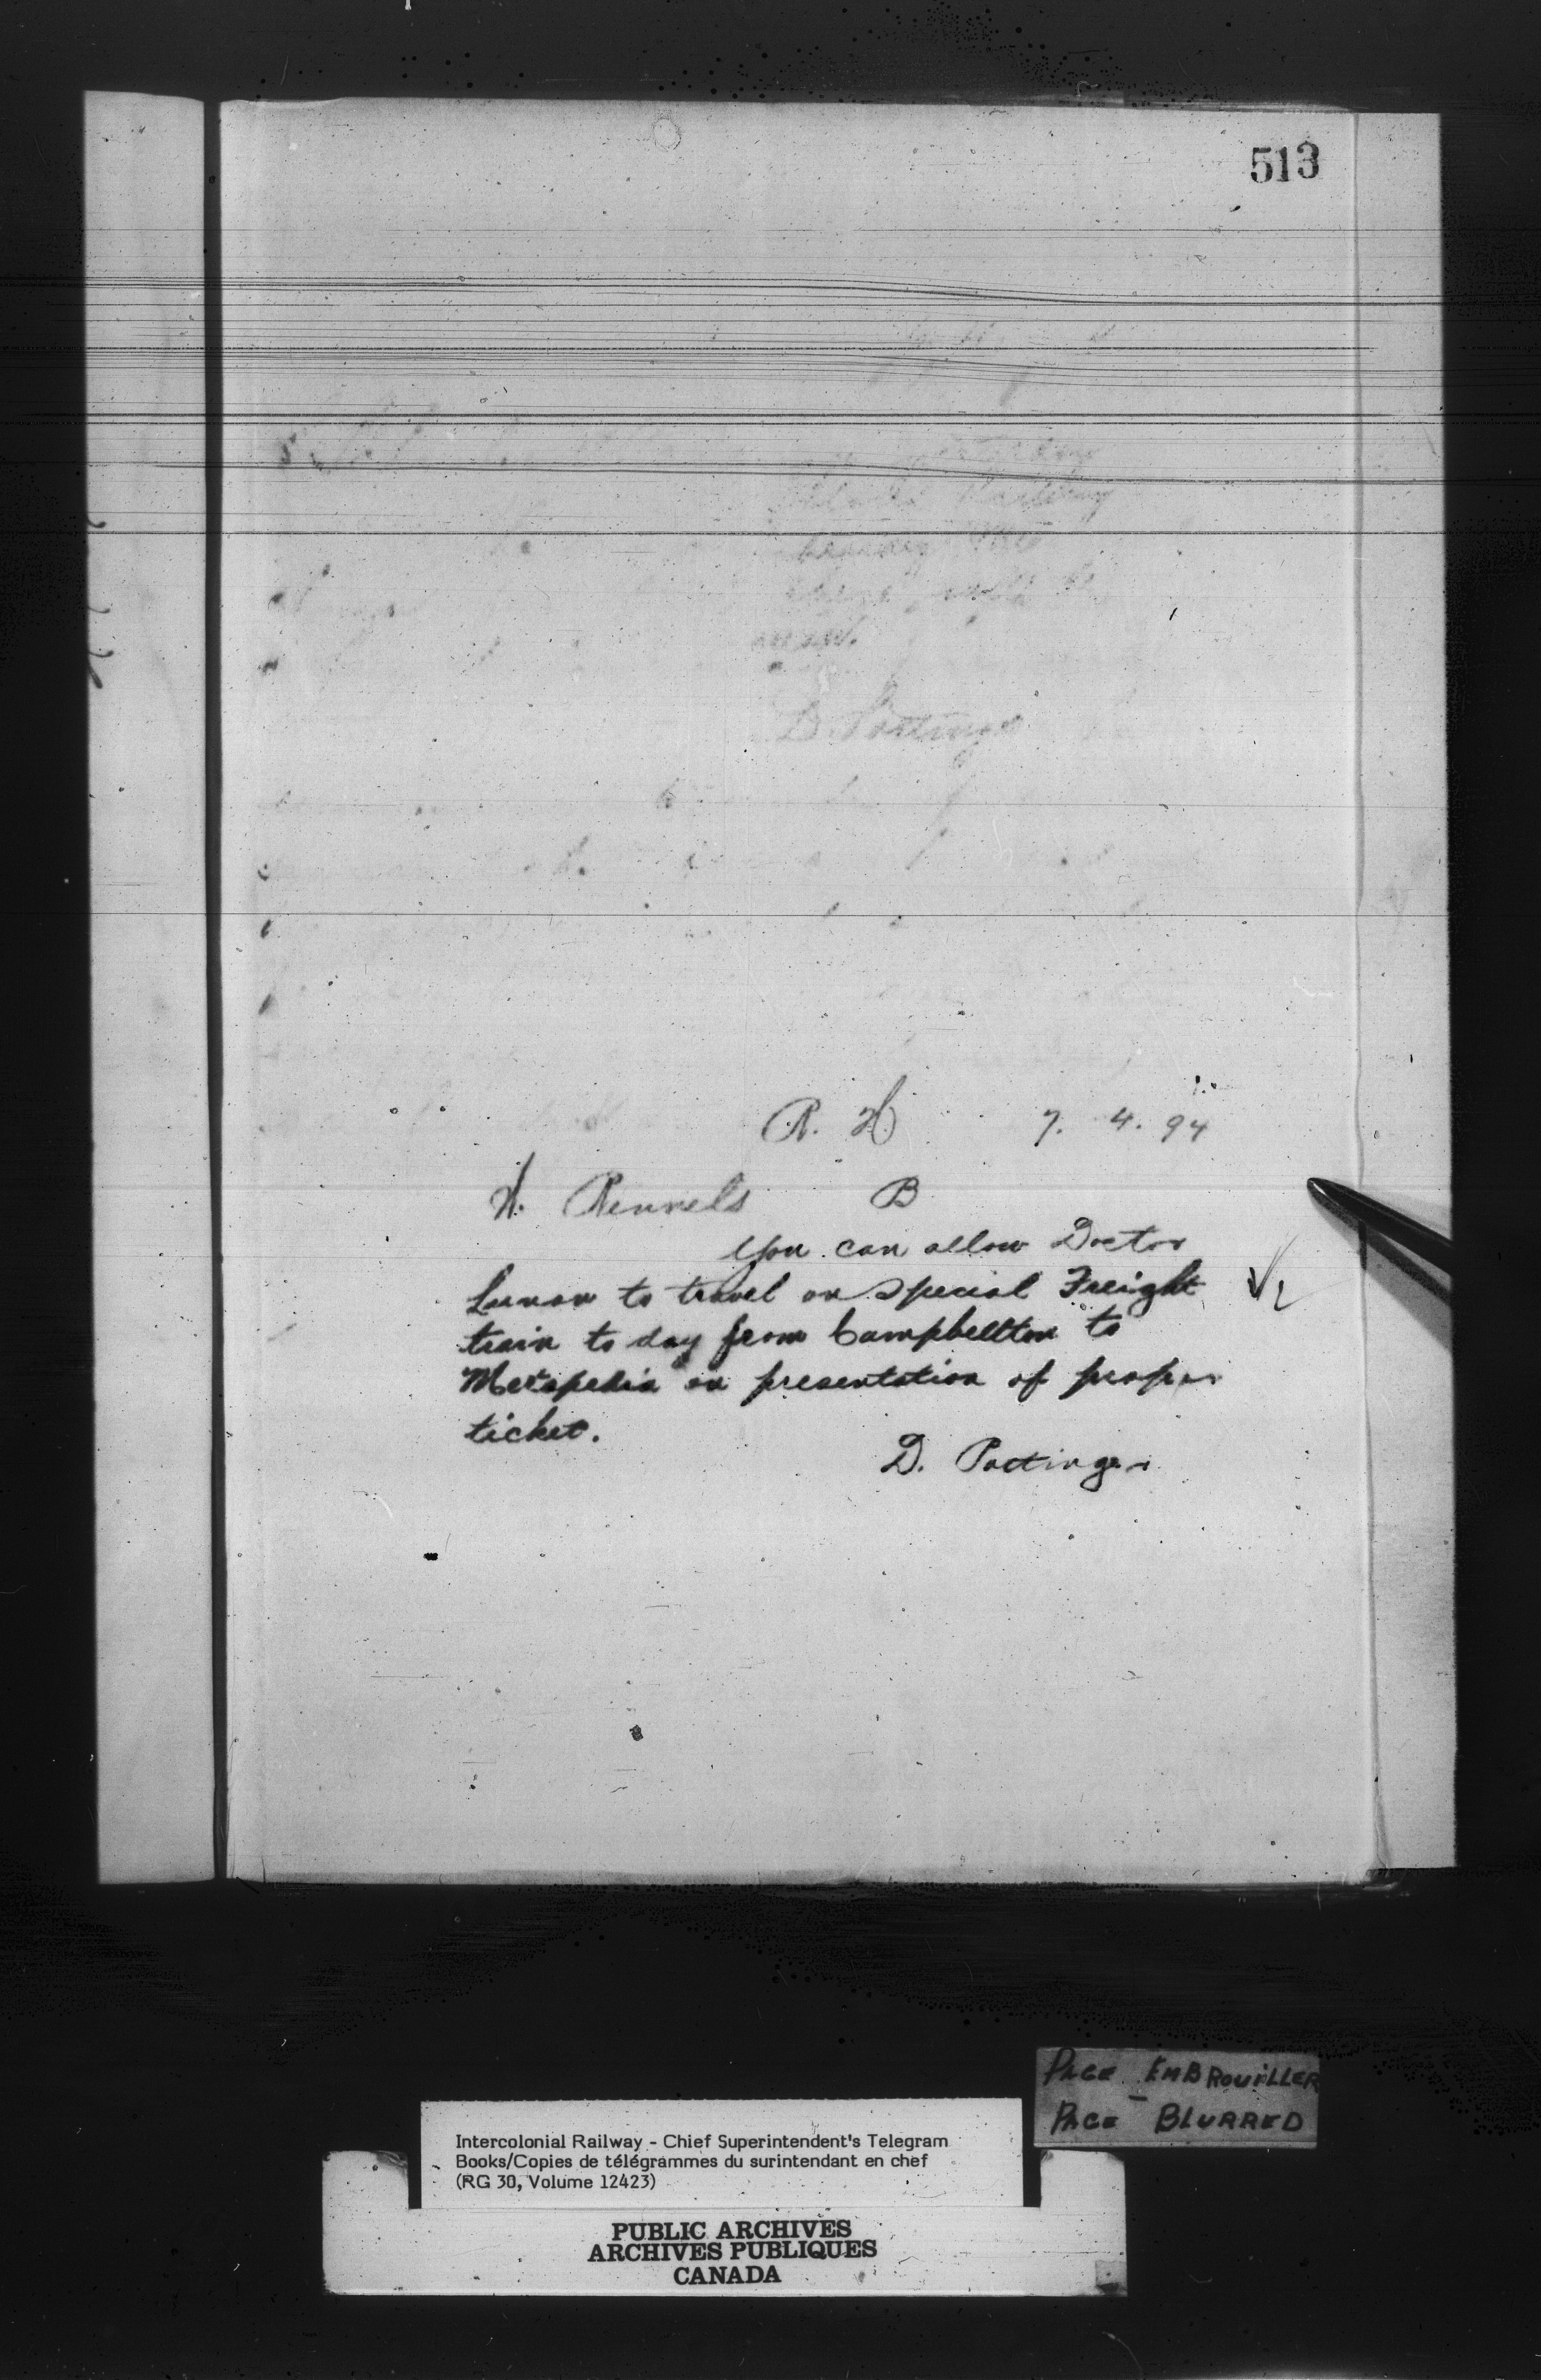 513
D. Pottinger
R. H 7. 4. 94
H. Rennels B
You can allow Doctor
Lunan to travel on special Freight
train to day from Campbellton to
Metapedia on presentation of proper
ticket.
D. Pottinger
PAGE EMBROUILLER
PAGE BLURRED
Intercolonial Railway - Chief Superintendent's Telegram
Books/Copies de télégrammes du surintendant en chef
(RG 30, Volume 12423)
PUBLIC ARCHIVES
ARCHIVES PUBLIQUES
CANADA